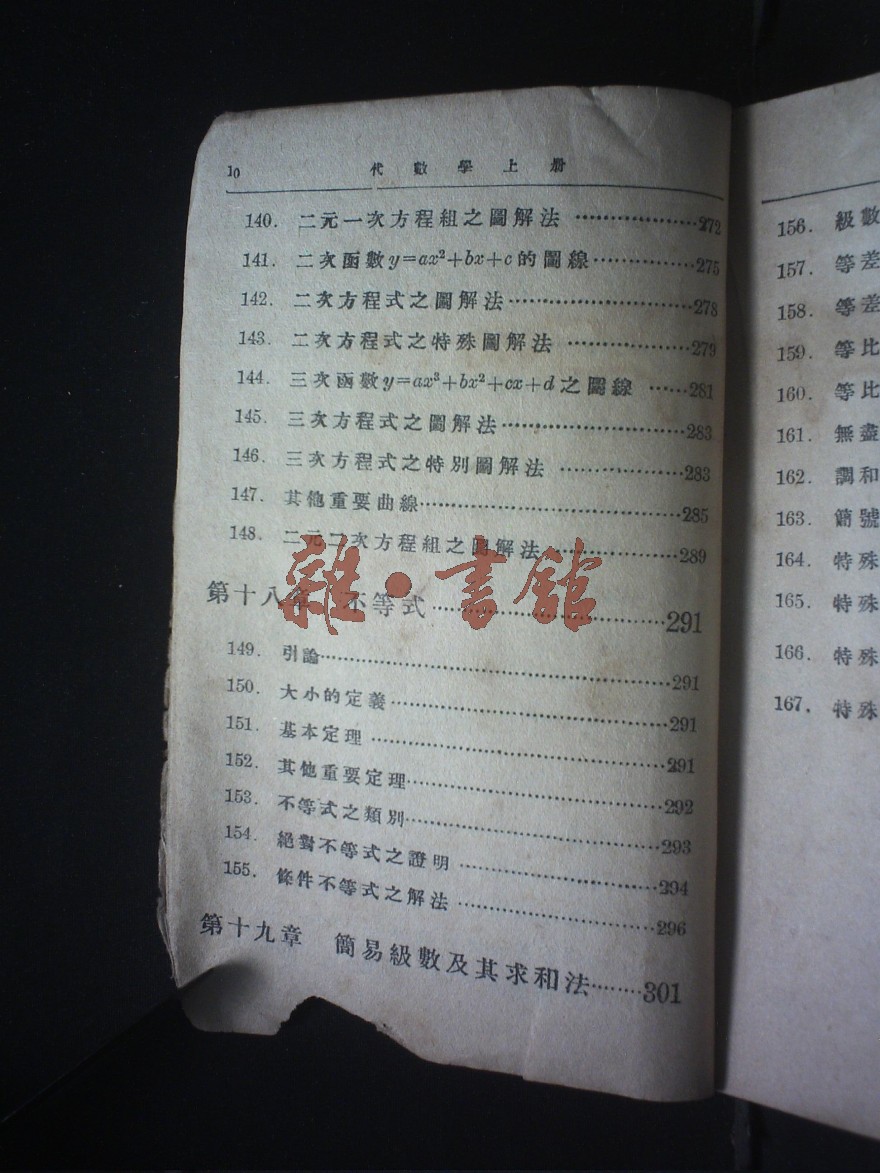 10 代數學上册
140. 二元一次方程組之圖解法 ……………… 272
141. 二次函數y=ax²+bx+c的圖線 …………… 275
142. 二次方程式之圖解法 ……………………… 278
143. 二次方程式之特殊圖解法 ……………… 279
144. 三次函數y=ax³+bx²+cx+d之圖線 …… 281
145. 三次方程式之圖解法 ……………………… 283
146. 三次方程式之特別圖解法 ……………… 283
147. 其他重要曲線 ……………………………… 285
148. 二元二次方程組之圖解法 ……………… 289
第十八章 不等式 ……………………………… 291
149. 引論 …………………………………………… 291
150. 大小的定義 ………………………………… 291
151. 基本定理 …………………………………… 291
152. 其他重要定理 ……………………………… 292
153. 不等式之類別 ……………………………… 293
154. 絕對不等式之證明 ……………………… 294
155. 條件不等式之解法 ……………………… 296
第十九章 簡易級數及其求和法 ……… 301
雜·書館
156. 級數
157. 等差
158. 等差
159. 等比
160. 等比
161. 無盡
162. 調和
163. 簡號
164. 特殊
165. 特殊
166. 特殊
167. 特殊